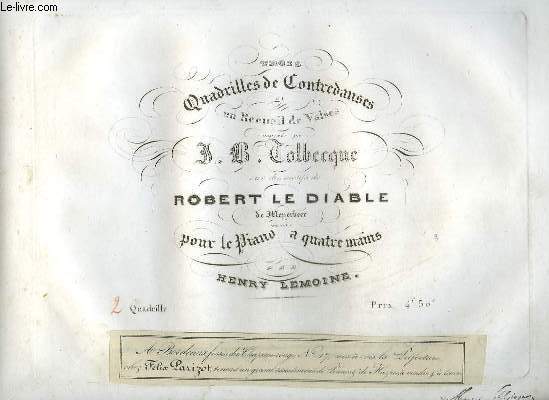 TROIS
Quadrilles de Contredanses
et
un Recueil de Valses
composés par
J. B. Tolbecque
sur des motifs de
ROBERT LE DIABLE
de Meyerbeer
pour le Piano à quatre mains
PAR
HENRY LEMOINE.
2 Quadrille Prix 4f 50c
A Bordeaux, fossés du Chapeau rouge, No 17, vis-à-vis la Préfecture
chez Felix Parizot, tenant un grand assortiment de